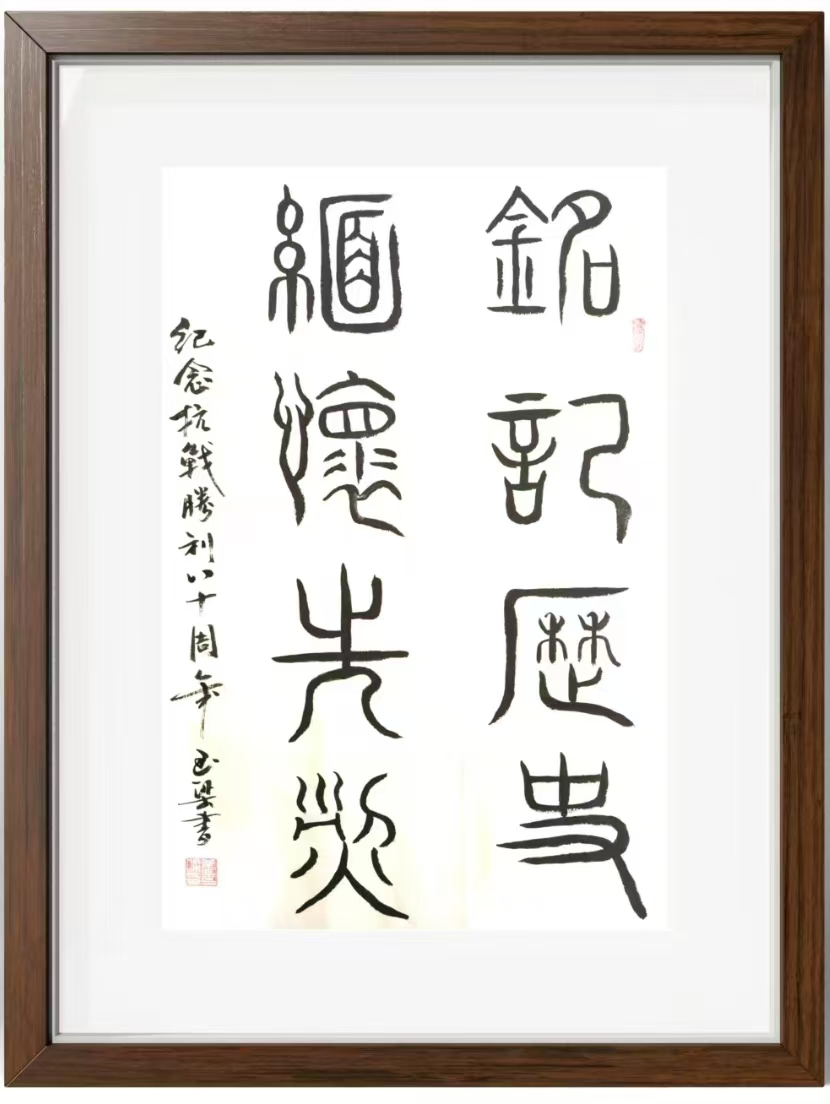 銘記歷史
緬懷先烈
纪念抗戰勝利八十周年 玉梁書